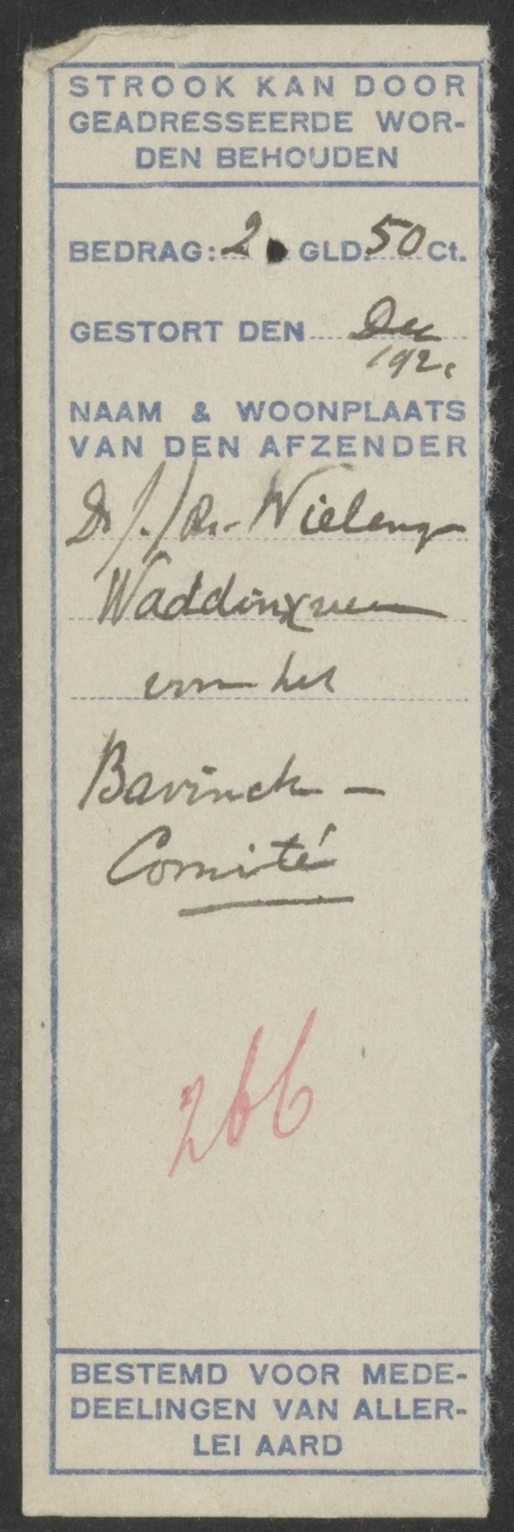 STROOK KAN DOOR
GEADRESSEERDE WOR-
DEN BEHOUDEN
BEDRAG: 2. GLD. 50 Ct.
GESTORT DEN Dec
192
NAAM & WOONPLAATS
VAN DEN AFZENDER
Dr Wielenga
Waddinxveen
voor het
Bavinck-
Comité
266
BESTEMD VOOR MEDE-
DEELINGEN VAN ALLER-
LEI AARD